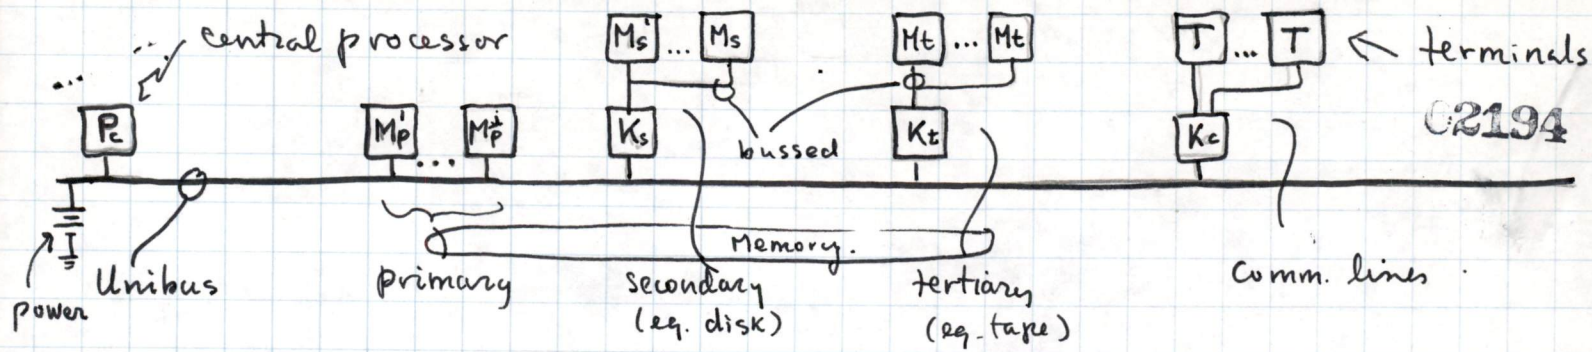 central processor
Ms ... Ms
Mt ... Mt
T ... T
terminals
Pc
Mp ... Mp
Ks
bussed
Kt
Kc
02194
Memory.
power
Unibus
primary
secondary
(eg. disk)
tertiary
(eg. tape)
comm. lines